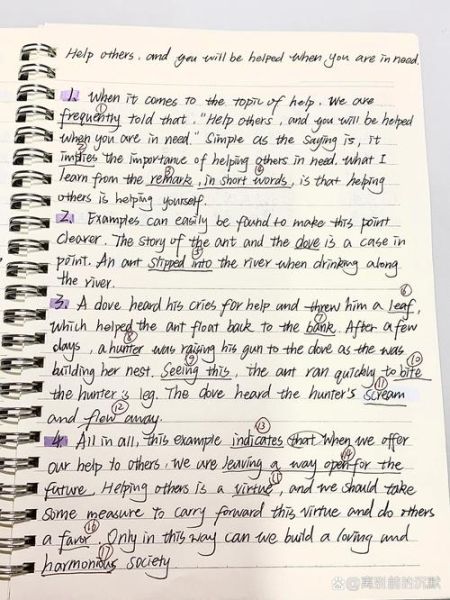 Help others, and you will be helped when you are in need.
1. When it comes to the topic of help. We are
①
frequently told that. "Help others, and you will be helped
when you are in need." Simple as the saying is, it
②
implies the importance of helping others in need. What I
③ ④
learn from the remark, in short words, is that helping
others is helping yourself.
2. Examples can easily be found to make this point
clearer. The story of the ant and the dove is a case in
⑤
point. An ant slipped into the river when drinking along
the river.
⑥
3. A dove heard his cries for help and threw him a leaf,
⑦
which helped the ant float back to the bank. After a few
⑧
days, a hunter was raising his gun to the dove as she was
⑨ ⑩
building her nest. Seeing this, the ant ran quickly to bite
⑪
the hunter's leg. The dove heard the hunter's scream
⑫
and flew away.
⑬
4. All in all, this example indicates that when we offer
⑭
our help to others, we are leaving a way open for the
⑮
future. Helping others is a virtue, and we should take
some measure to carry forward this virtue and do others
⑯
a favor. Only in this way can we build a loving and
⑰
harmonious society
百家号@离别前的沉默